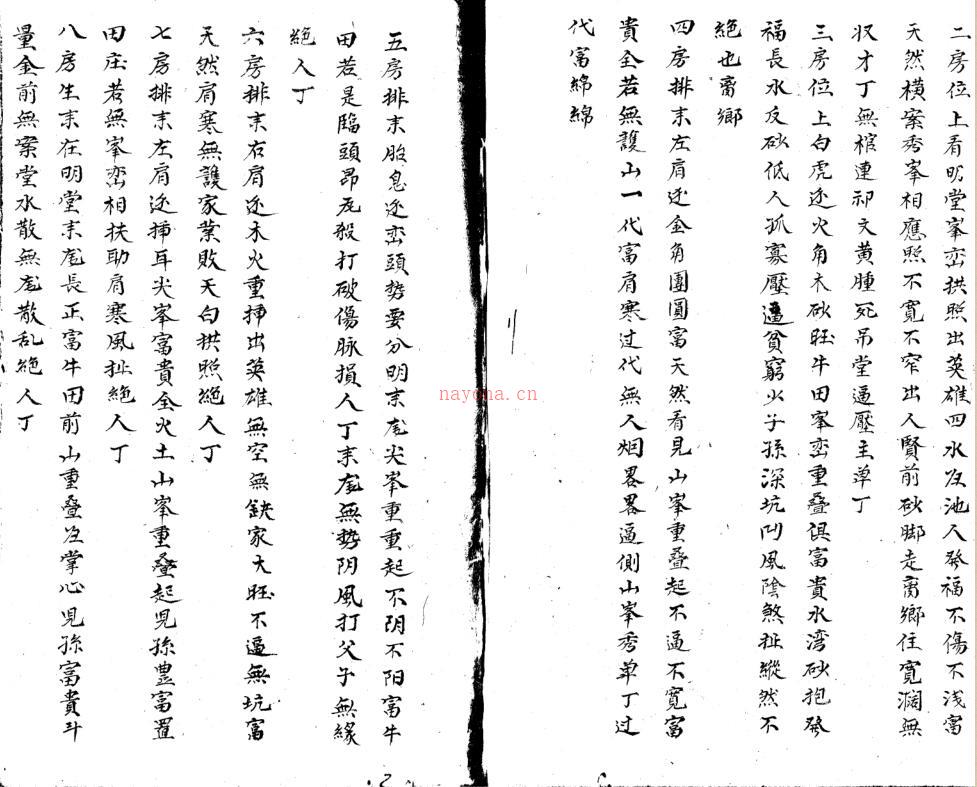 二房位上看明堂峯峦拱照出英雄四水反池人發福不傷不浅富
天然横案秀峯相應照不寬不窄出人賢前砂脚走离鄉住寬濶無
収才丁無棺連祁文黄腫死吊堂逼壓主單丁
三房位上白虎迯火角木砂旺牛田峯峦重叠俱富貴水湾砂抱發
福長水反砂低人孤寡壓逼貧窮少子孫深坑凹風陰煞扯縱然不
絕也离鄉
四房排来左肩迯金角團圓富天然看見山峯重叠起不逼不寬富
貴全若無護山一代富肩寒过代無人烟畧畧逼側山峯秀单丁过
代富綿綿
五房排来胎息迯峦頭势要分明来龙尖峯重重起不阴不阳富牛
田若是臨頭昂瓦殺打破傷脉損人丁来龙無势阴風打父子無緣
絕人丁
六房排来右肩迯木火重挿出英雄無空無缺家大旺不逼無坑富
天然肩寒無護家業敗天白拱照絕人丁
七房排来左肩迯挿耳尖峯富貴全火土山峯重叠起児孫豊富置
田庄若無峯峦相扶助肩寒風扯絕人丁
八房生来在明堂来龙長正富牛田前山重叠在掌心児孫富貴斗
量金前無案堂水散無龙散乱絕人丁
nayona.cn